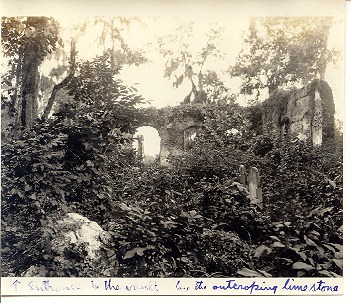 ↑ Entrance to the vault L, the outcroping limestone